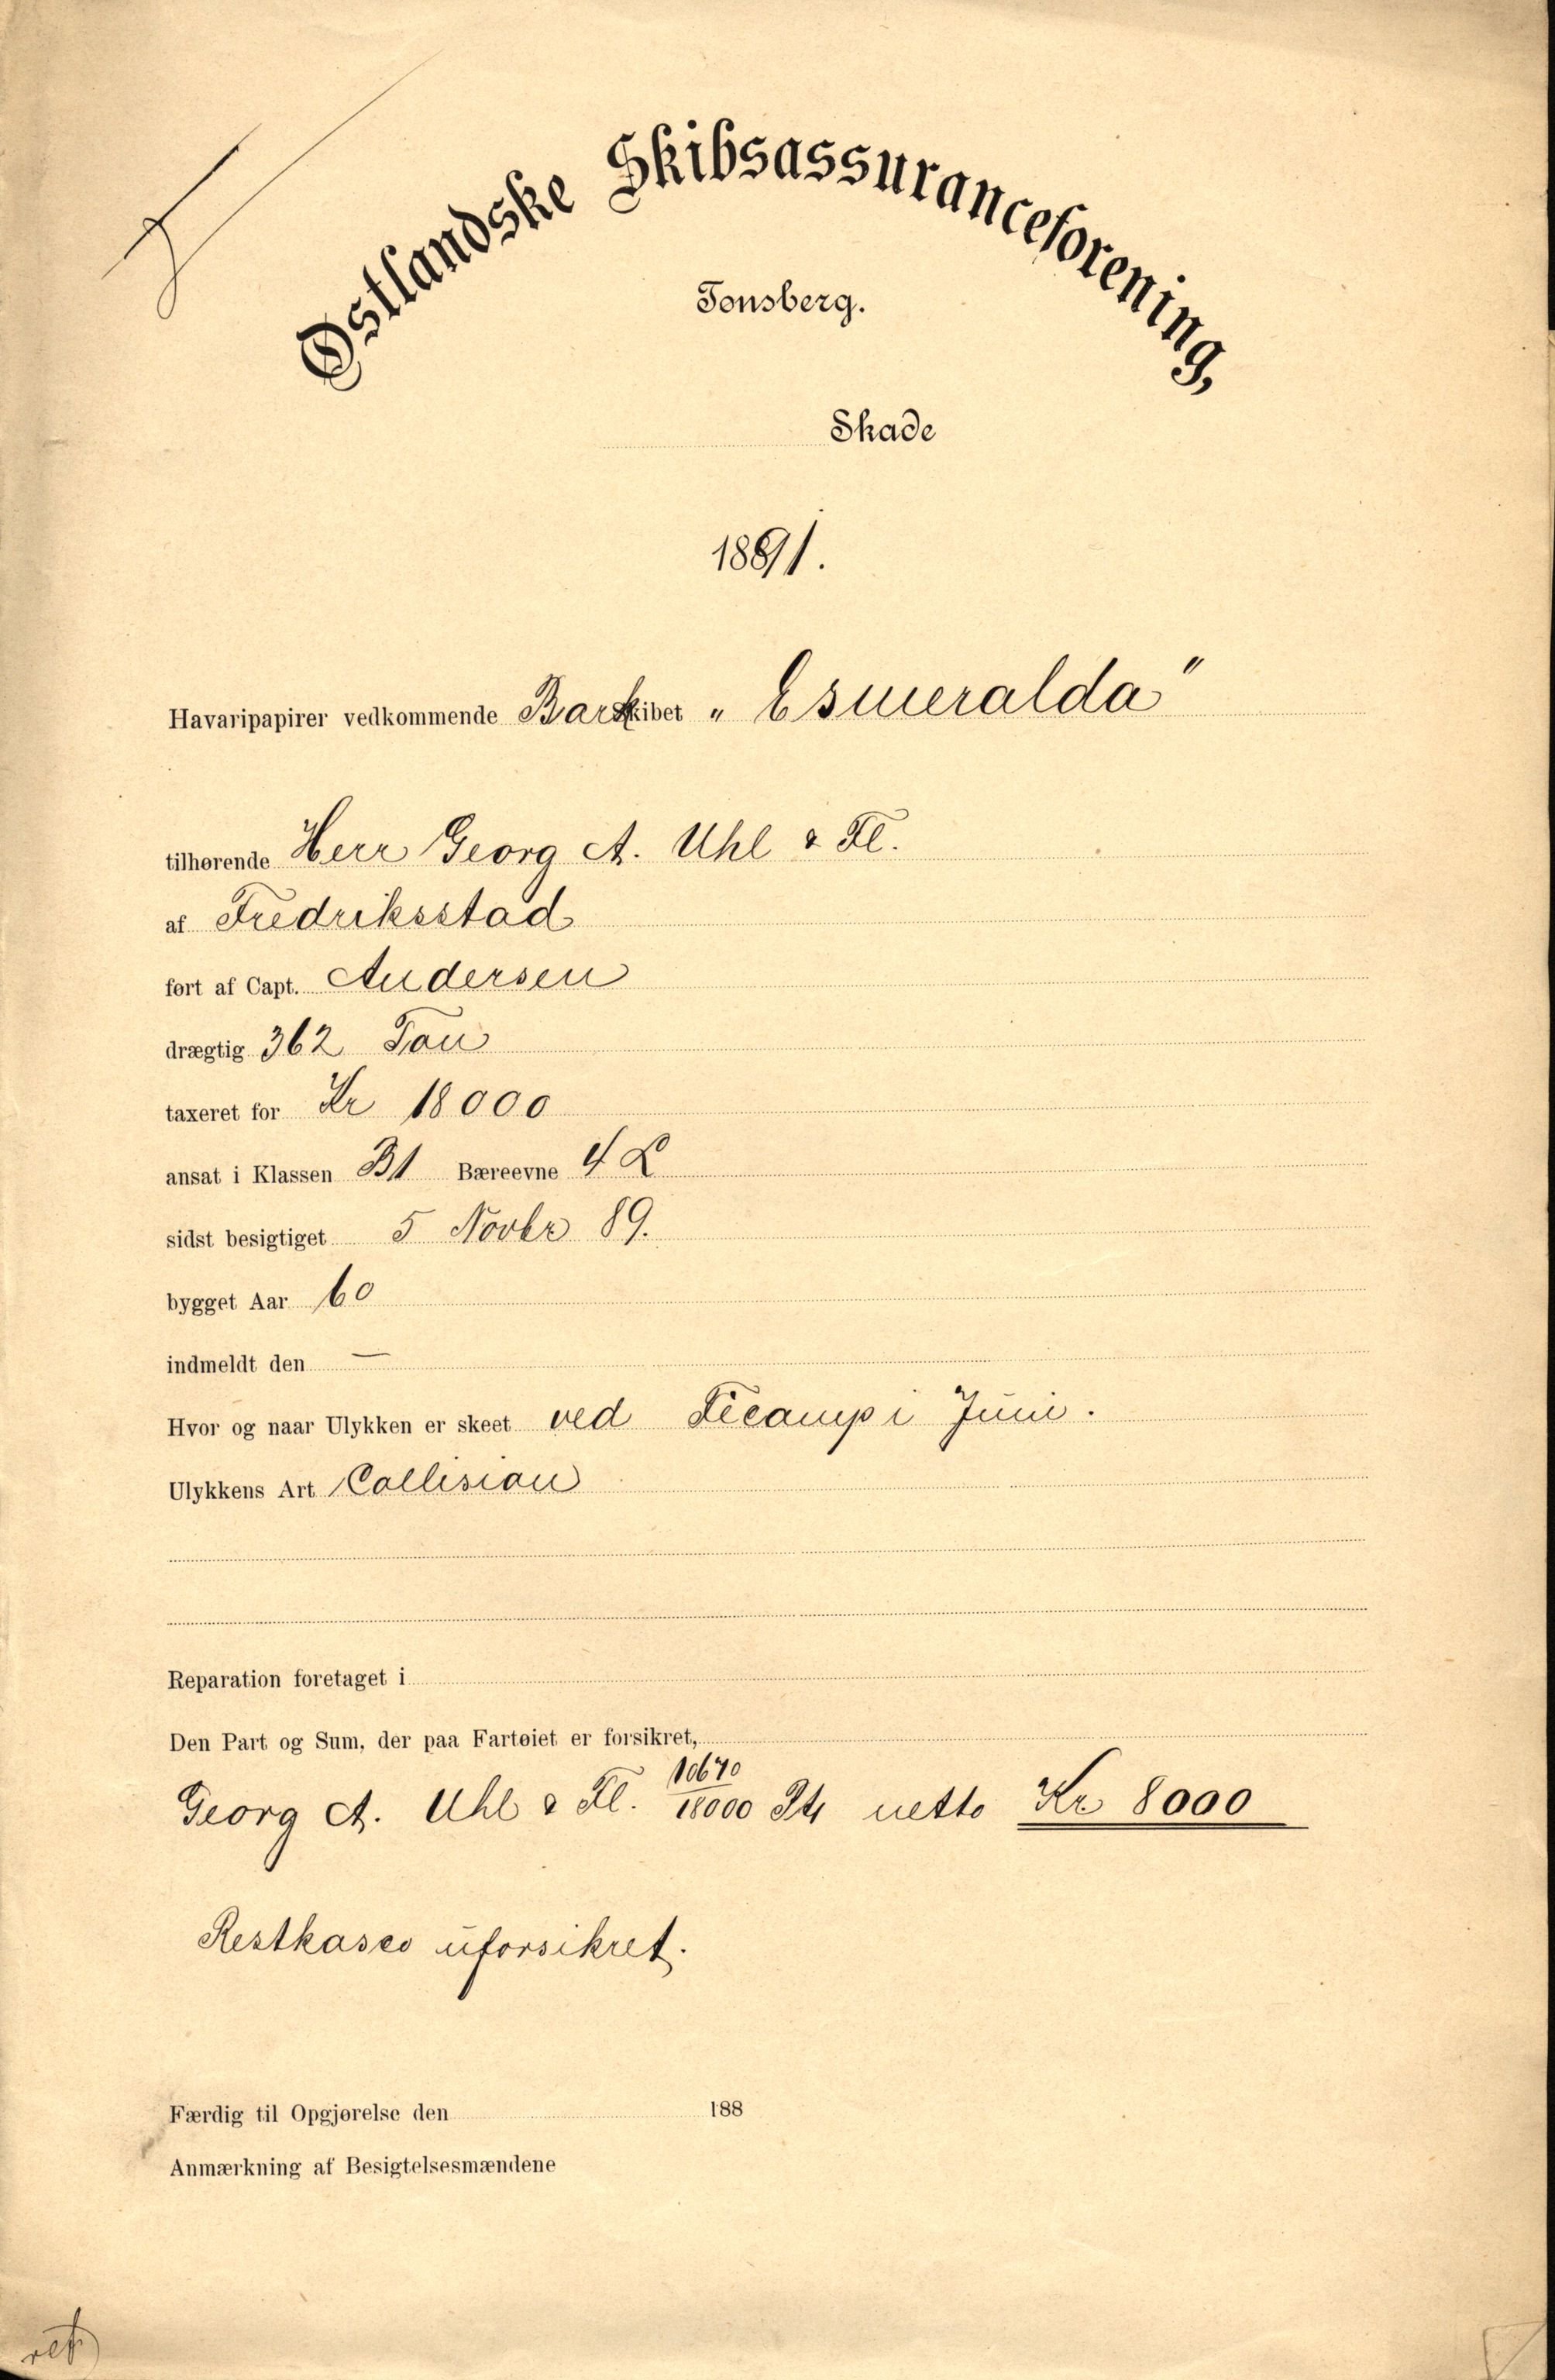 Østlandske Skibsassuranceforening,
Tønsberg.
Skade
1891.
Havaripapirer vedkommende Barkskibet „Esmeralda"
tilhørende Herr Georg A. Uhl & Fl.
af Fredriksstad
ført af Capt. Andersen
drægtig 362 Ton
taxeret for Kr 18000
ansat i Klassen B1 Bæreevne 4 L
sidst besigtiget 5 Novbr 89.
bygget Aar 60
indmeldt den —
Hvor og naar Ulykken er skeet ved Fecamp i Juni.
Ulykkens Art Collision
Reparation foretaget i
Den Part og Sum, der paa Fartøiet er forsikret,
Georg A. Uhl & Fl. 10670/18000 netto Kr 8000
Restkasco uforsikret.
Færdig til Opgjørelse den 188
Anmærkning af Besigtelsesmændene